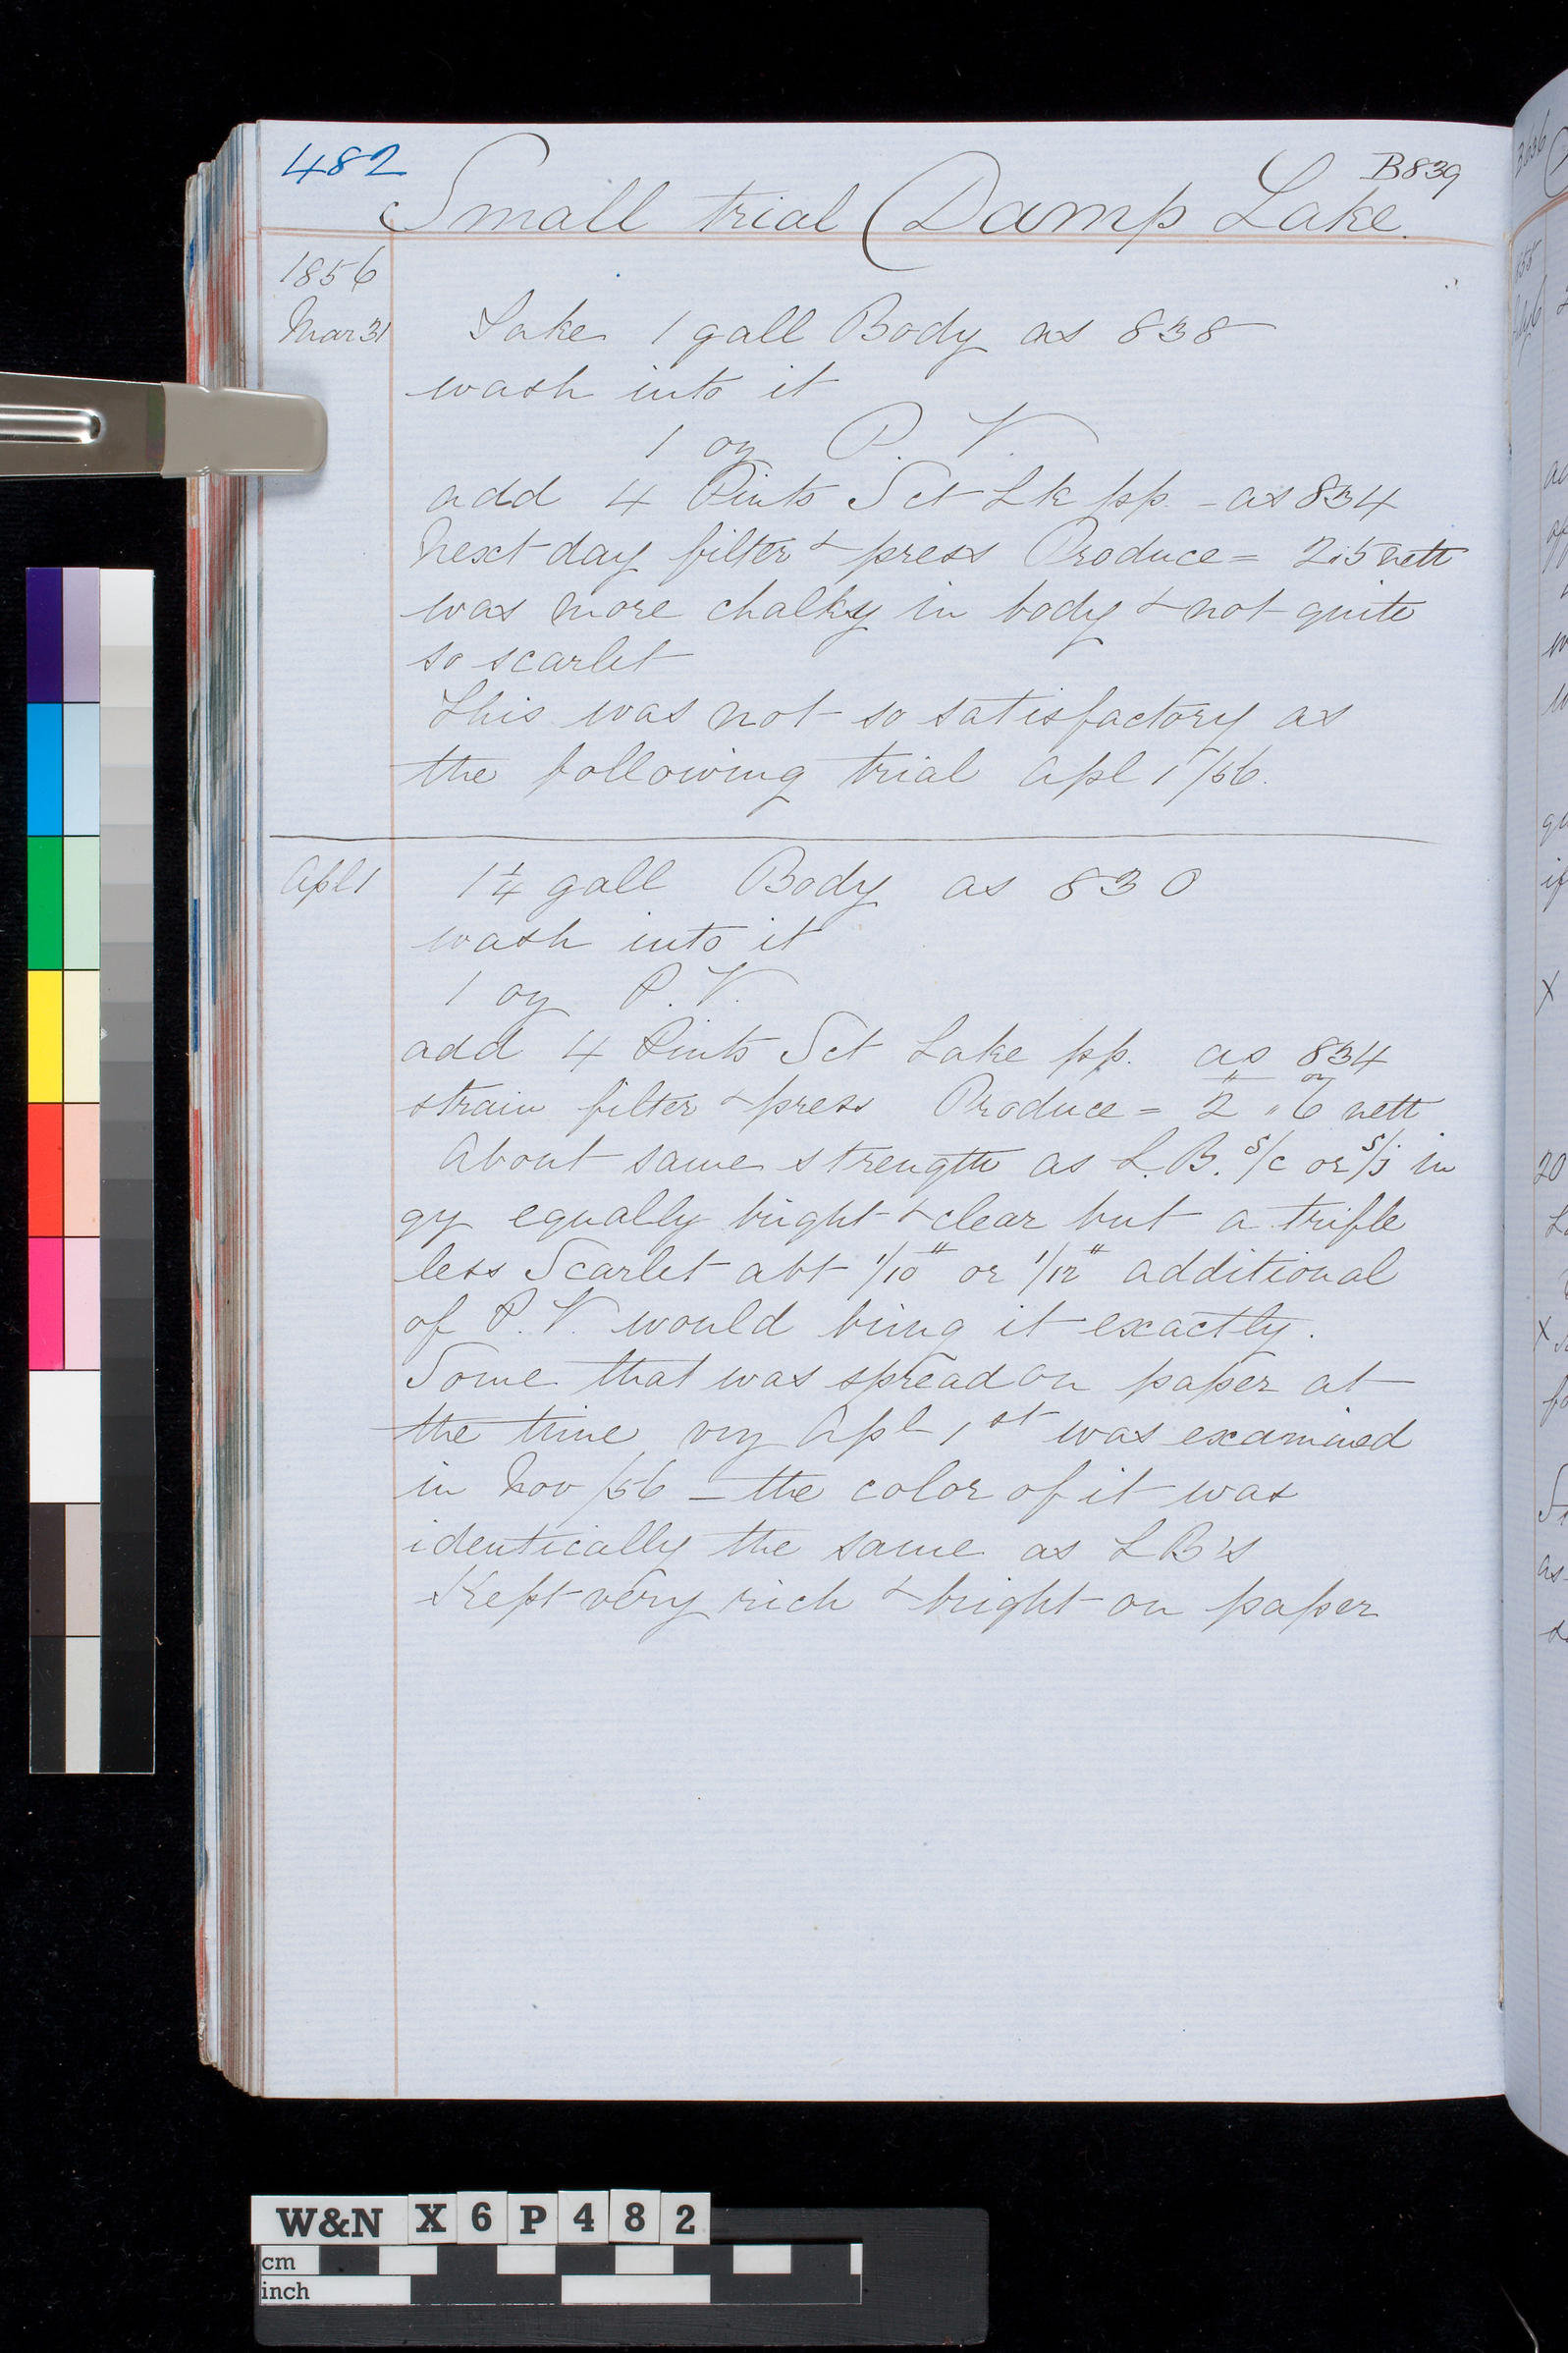 482
B839
Small trial (Damp Lake.
1856
Mar 31
Take 1 gall Body as 838
wash into it
1 oz P. V.
add 4 Pints Sct Lk pp. - as 834
Next day filter & press Produce = 2.5 nett
was more chalky in body & not quite
so scarlet
This was not so satisfactory as
the following trial Apl 1 /56.
Apl 1
1 1/4 gall Body as 830
wash into it
1 oz P. V.
add 4 Pints Sct Lake pp. as 834
strain filter & press Produce = 2 " 6 oz nett
About same strength as L.B. s/c or s/j in
gy equally bright & clear but a trifle
less Scarlet abt 1/10 " or 1/12 " additional
of P. V. would bring it exactly.
Some that was spread on paper at
the time, vry Apl 1st was examined
in Nov /56 - the color of it was
identically the same as L B's
Kept very rich & bright on paper
W&N X 6 P 4 8 2
cm
inch